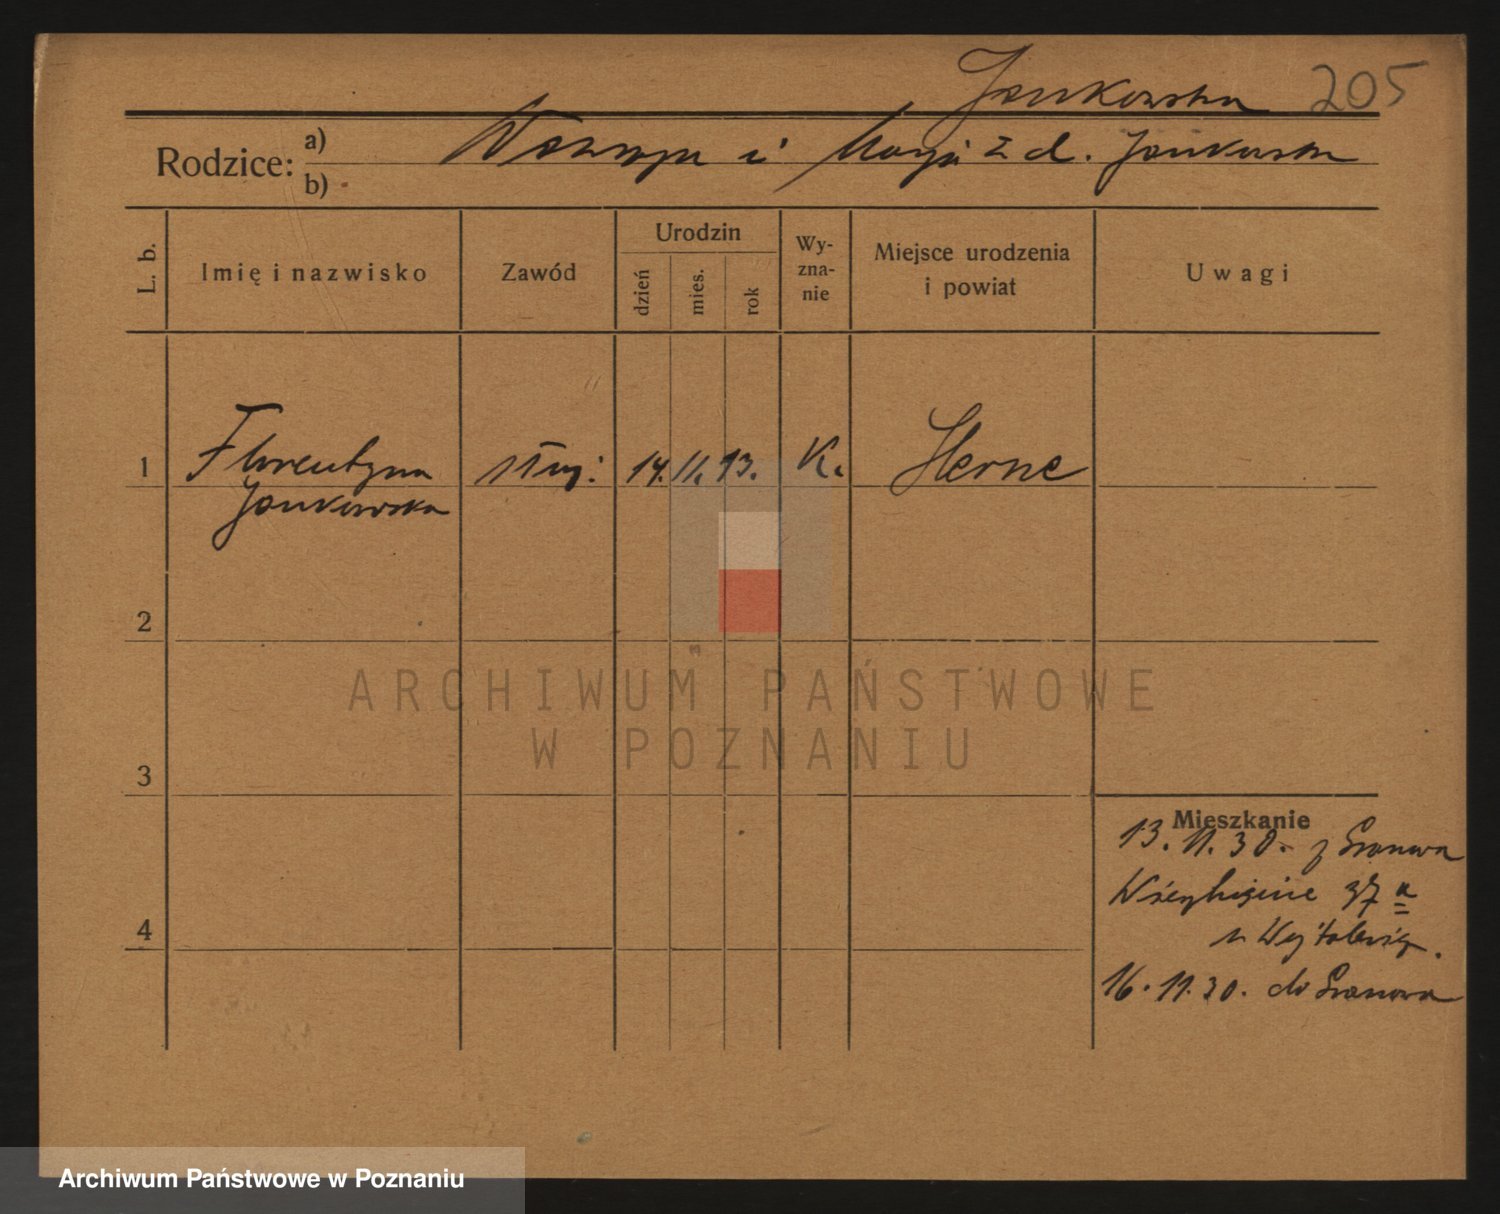 Jankowska 205
Rodzice: a) Wawrzyn i Maryi z d. Jankowska
b)
L. b.
Imię i nazwisko
Zawód
Urodzin
dzień
mies.
rok
Wy-
zna-
nie
Miejsce urodzenia
i powiat
Uwagi
1 Florentyna służ. 14. 11. 13. K. Herne
Jankowska
2
3
4
Mieszkanie
13. 11. 30. z Granowa
37 a
u
16. 11. 30. do Granowa
ARCHIWUM PAŃSTWOWE
W POZNANIU
Archiwum Państwowe w Poznaniu